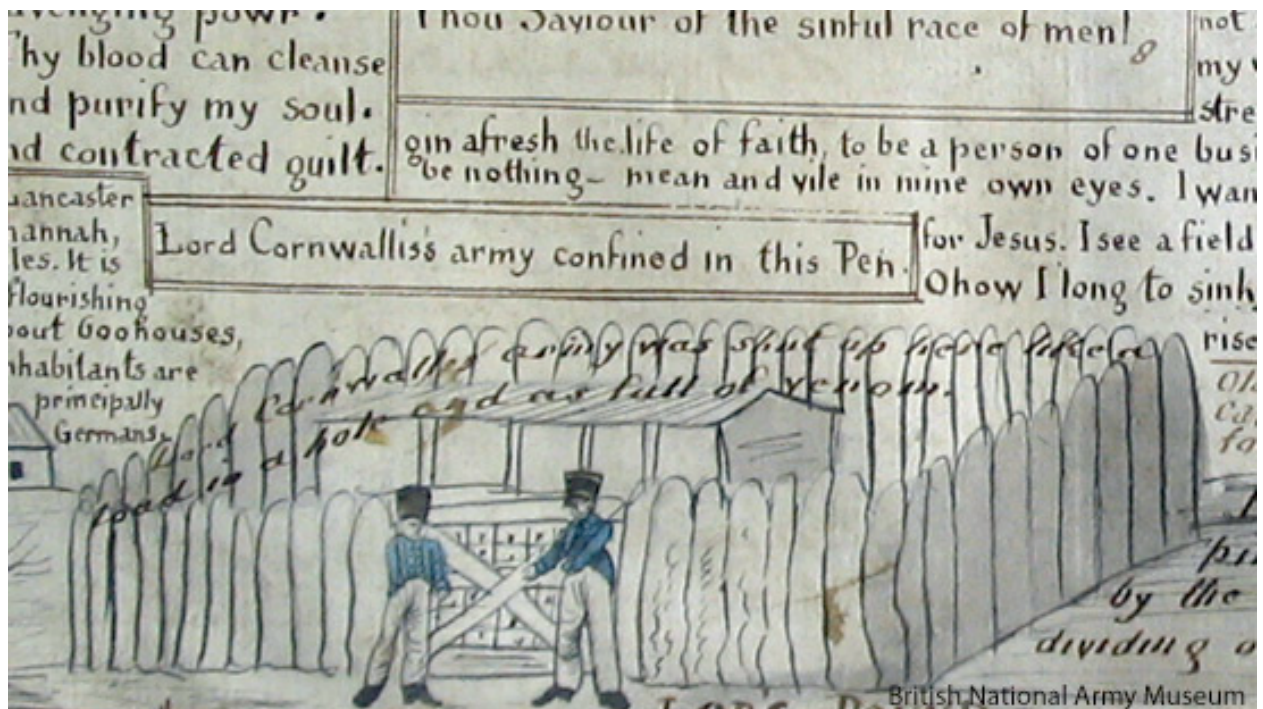 avenging powr.
Thy blood can cleanse
nd purify my soul.
nd contracted guilt.
Thou Saviour of the sinful race of men!
8
not
my
stre
gin afresh the life of faith, to be a person of one busi
be nothing- mean and vile in mine own eyes. I wan
for Jesus. I see a field
O how I long to sink
rise
Lancaster
annah,
les. It is
flourishing
bout 600 houses,
nhabitants are
principally
Germans.
Lord Cornwallis's army confined in this Pen.
Lord Cornwalles army was shut up here like a
toad in a hole and as full of venom.
Ol
Ca
fo
by the
dividing o
British National Army Museum